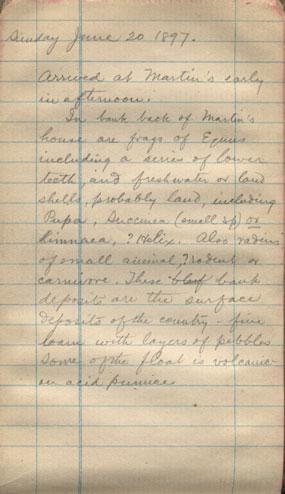 Sunday June 20 1897.
Arrived at Martin's early
in afternoon.
In bank back of Martin's
house are frags of Equus
including a series of lower
teeth, and freshwater or land
shells, probably land, including
Pupa, Succinea (small sp) or
Limnaea, ? Helix. Also radius
of small animal, ? rodent or
carnivore. These bank
deposits are the surface
deposits of the country - fine
loam with layers of pebbles
Some of the float is volcanic
or acid pumice